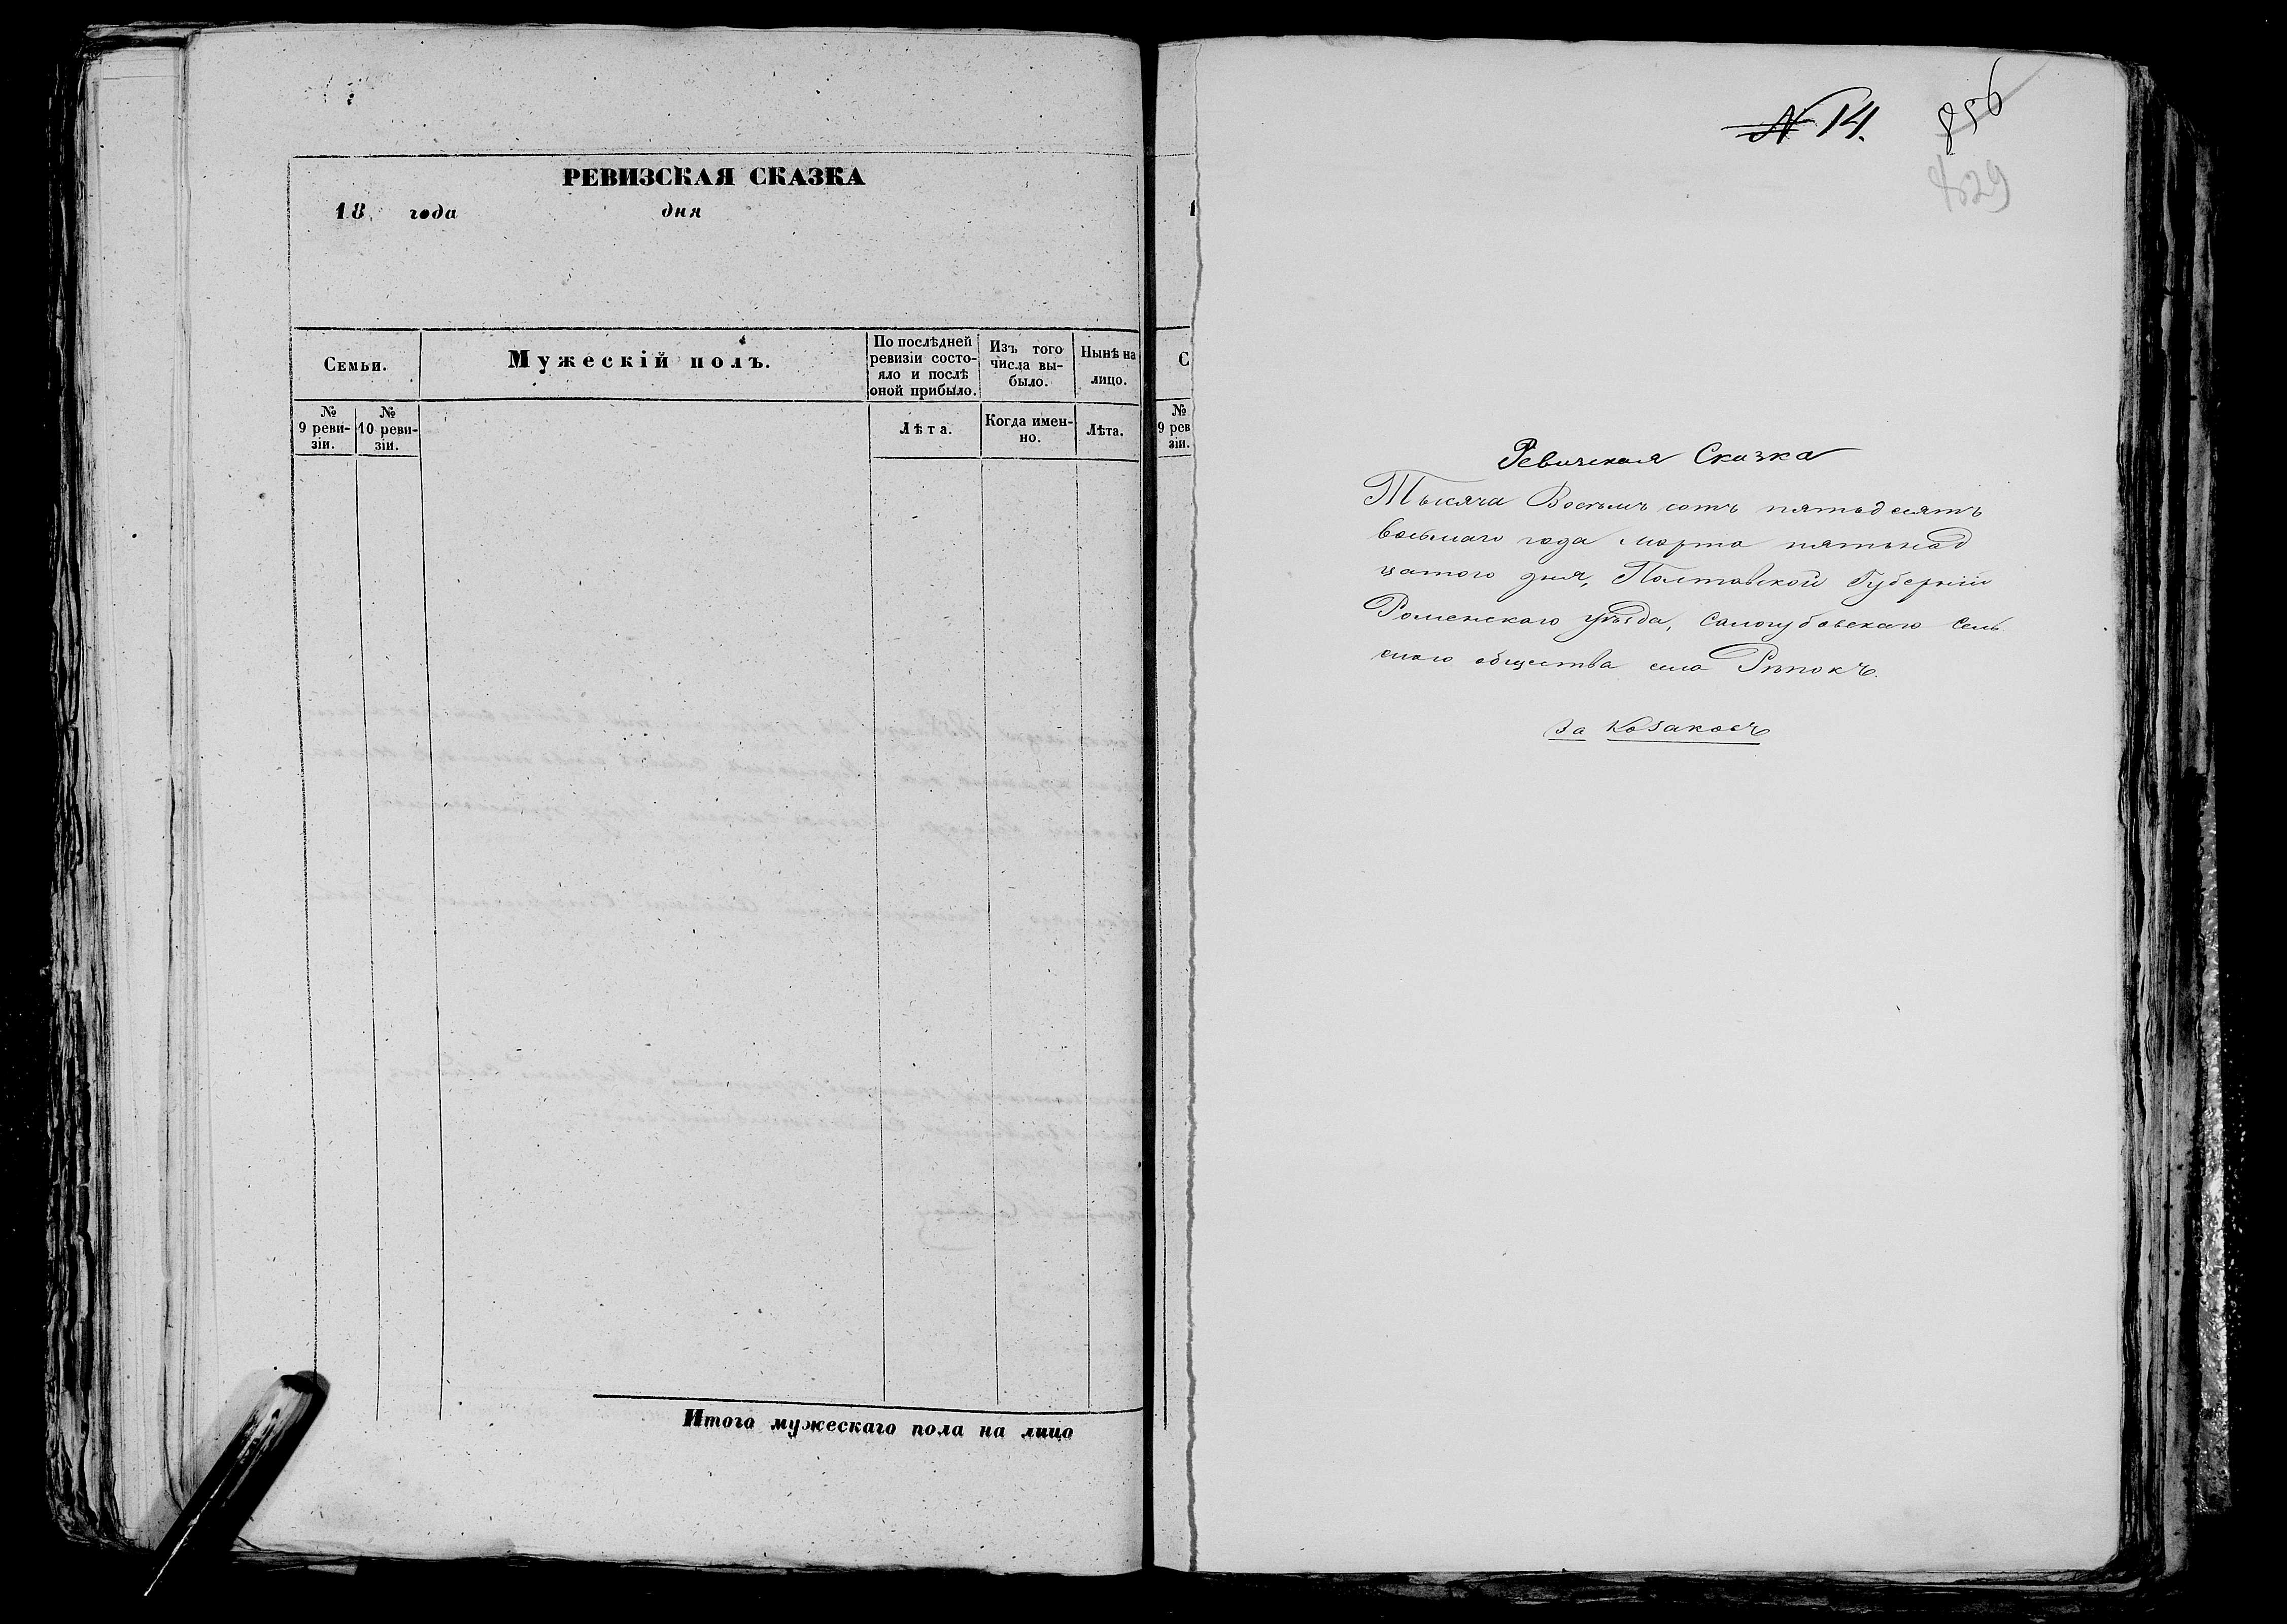 РЕВИЗСКАЯ СКАЗКА
18 года дня
Семьи.
Мужескій полъ.
По послѣдней
ревизіи состо-
яло и послѣ
оной прибыло.
Изъ того
числа вы-
было.
Нынѣ на
лицо.
№
9 реви-
зіи.
№
10 реви-
зіи.
Лѣта.
Когда имен-
но.
Лѣта.
Итого мужескаго пола на лицо
1
С
№
9 рев
зіи.
№ 14.
856
829
Ревизская Сказка
Тысяча Восемь сотъ пятьдесятъ
восьмаго года марта пятьнад
цатого дня, Полтавской Губерніи
Роменского уѣзда, Салогубовскаго Сель
ского общества села Рѣпокъ.
За Козаковъ